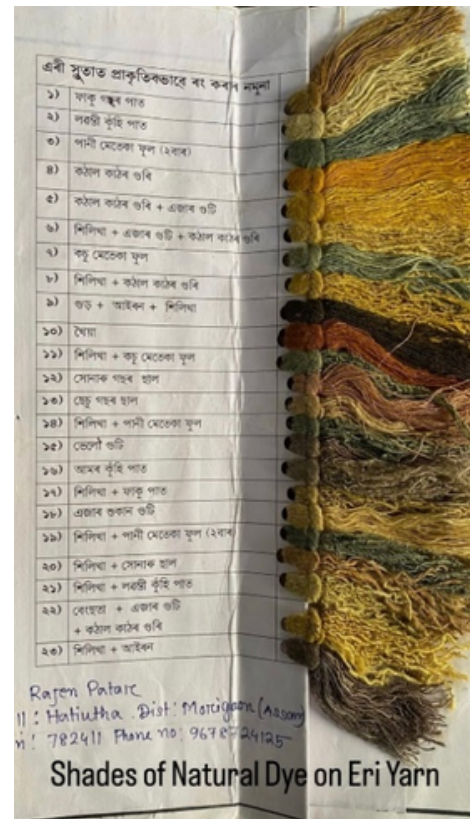 এৰী সুতাত প্ৰাকৃতিকভাবে ৰং কৰাৰ নমুনা
১) ফাকু গছৰ পাত
২) লৱণ্ডী কুঁহি পাত
৩) পানী মেতেকা ফুল (২বাৰ)
৪) কঠাল কাঠৰ গুৰি
৫) কঠাল কাঠৰ গুৰি + এজাৰ গুটি
৬) শিলিখা + এজাৰ গুটি + কঠাল কাঠৰ গুৰি
৭) কচু মেতেকা ফুল
৮) শিলিখা + কঠাল কাঠৰ গুৰি
৯) গুড় + আইৰন + শিলিখা
১০) থৈয়া
১১) শিলিখা + কচু মেতেকা ফুল
১২) সোনাৰু গছৰ ছাল
১৩) ছেচু গছৰ ছাল
১৪) শিলিখা + পানী মেতেকা ফুল
১৫) ভেলৌ গুটি
১৬) আমৰ কুঁহি পাত
১৭) শিলিখা + ফাকু পাত
১৮) এজাৰ শুকান গুটি
১৯) শিলিখা + পানী মেতেকা ফুল (২বাৰ)
২০) শিলিখা + সোনাৰু ছাল
২১) শিলিখা + লৱণ্ডী কুঁহি পাত
২২) + এজাৰ গুটি
+ কঠাল কাঠৰ গুৰি
২৩) শিলিখা + আইৰন
Rajen Patarc
: Hatiutha Dist: Morigaon (Assam)
: 782411 Phone no: 9678724125
Shades of Natural Dye on Eri Yarn